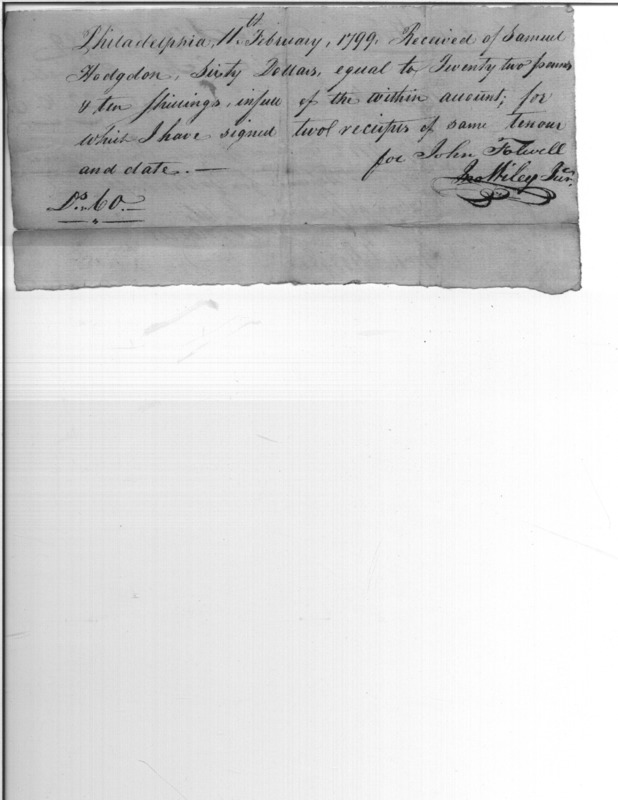 Philadelphia, 11th February, 1799. Received of Samuel
Hodgdon, Sixty Dollars, equal to Twenty two pounds
& ten shillings, in full of the within account; for
which I have signed two receipts of same tenour
and date. — for John Folwell
Jno Wiley Junr.
Ds. 60. —